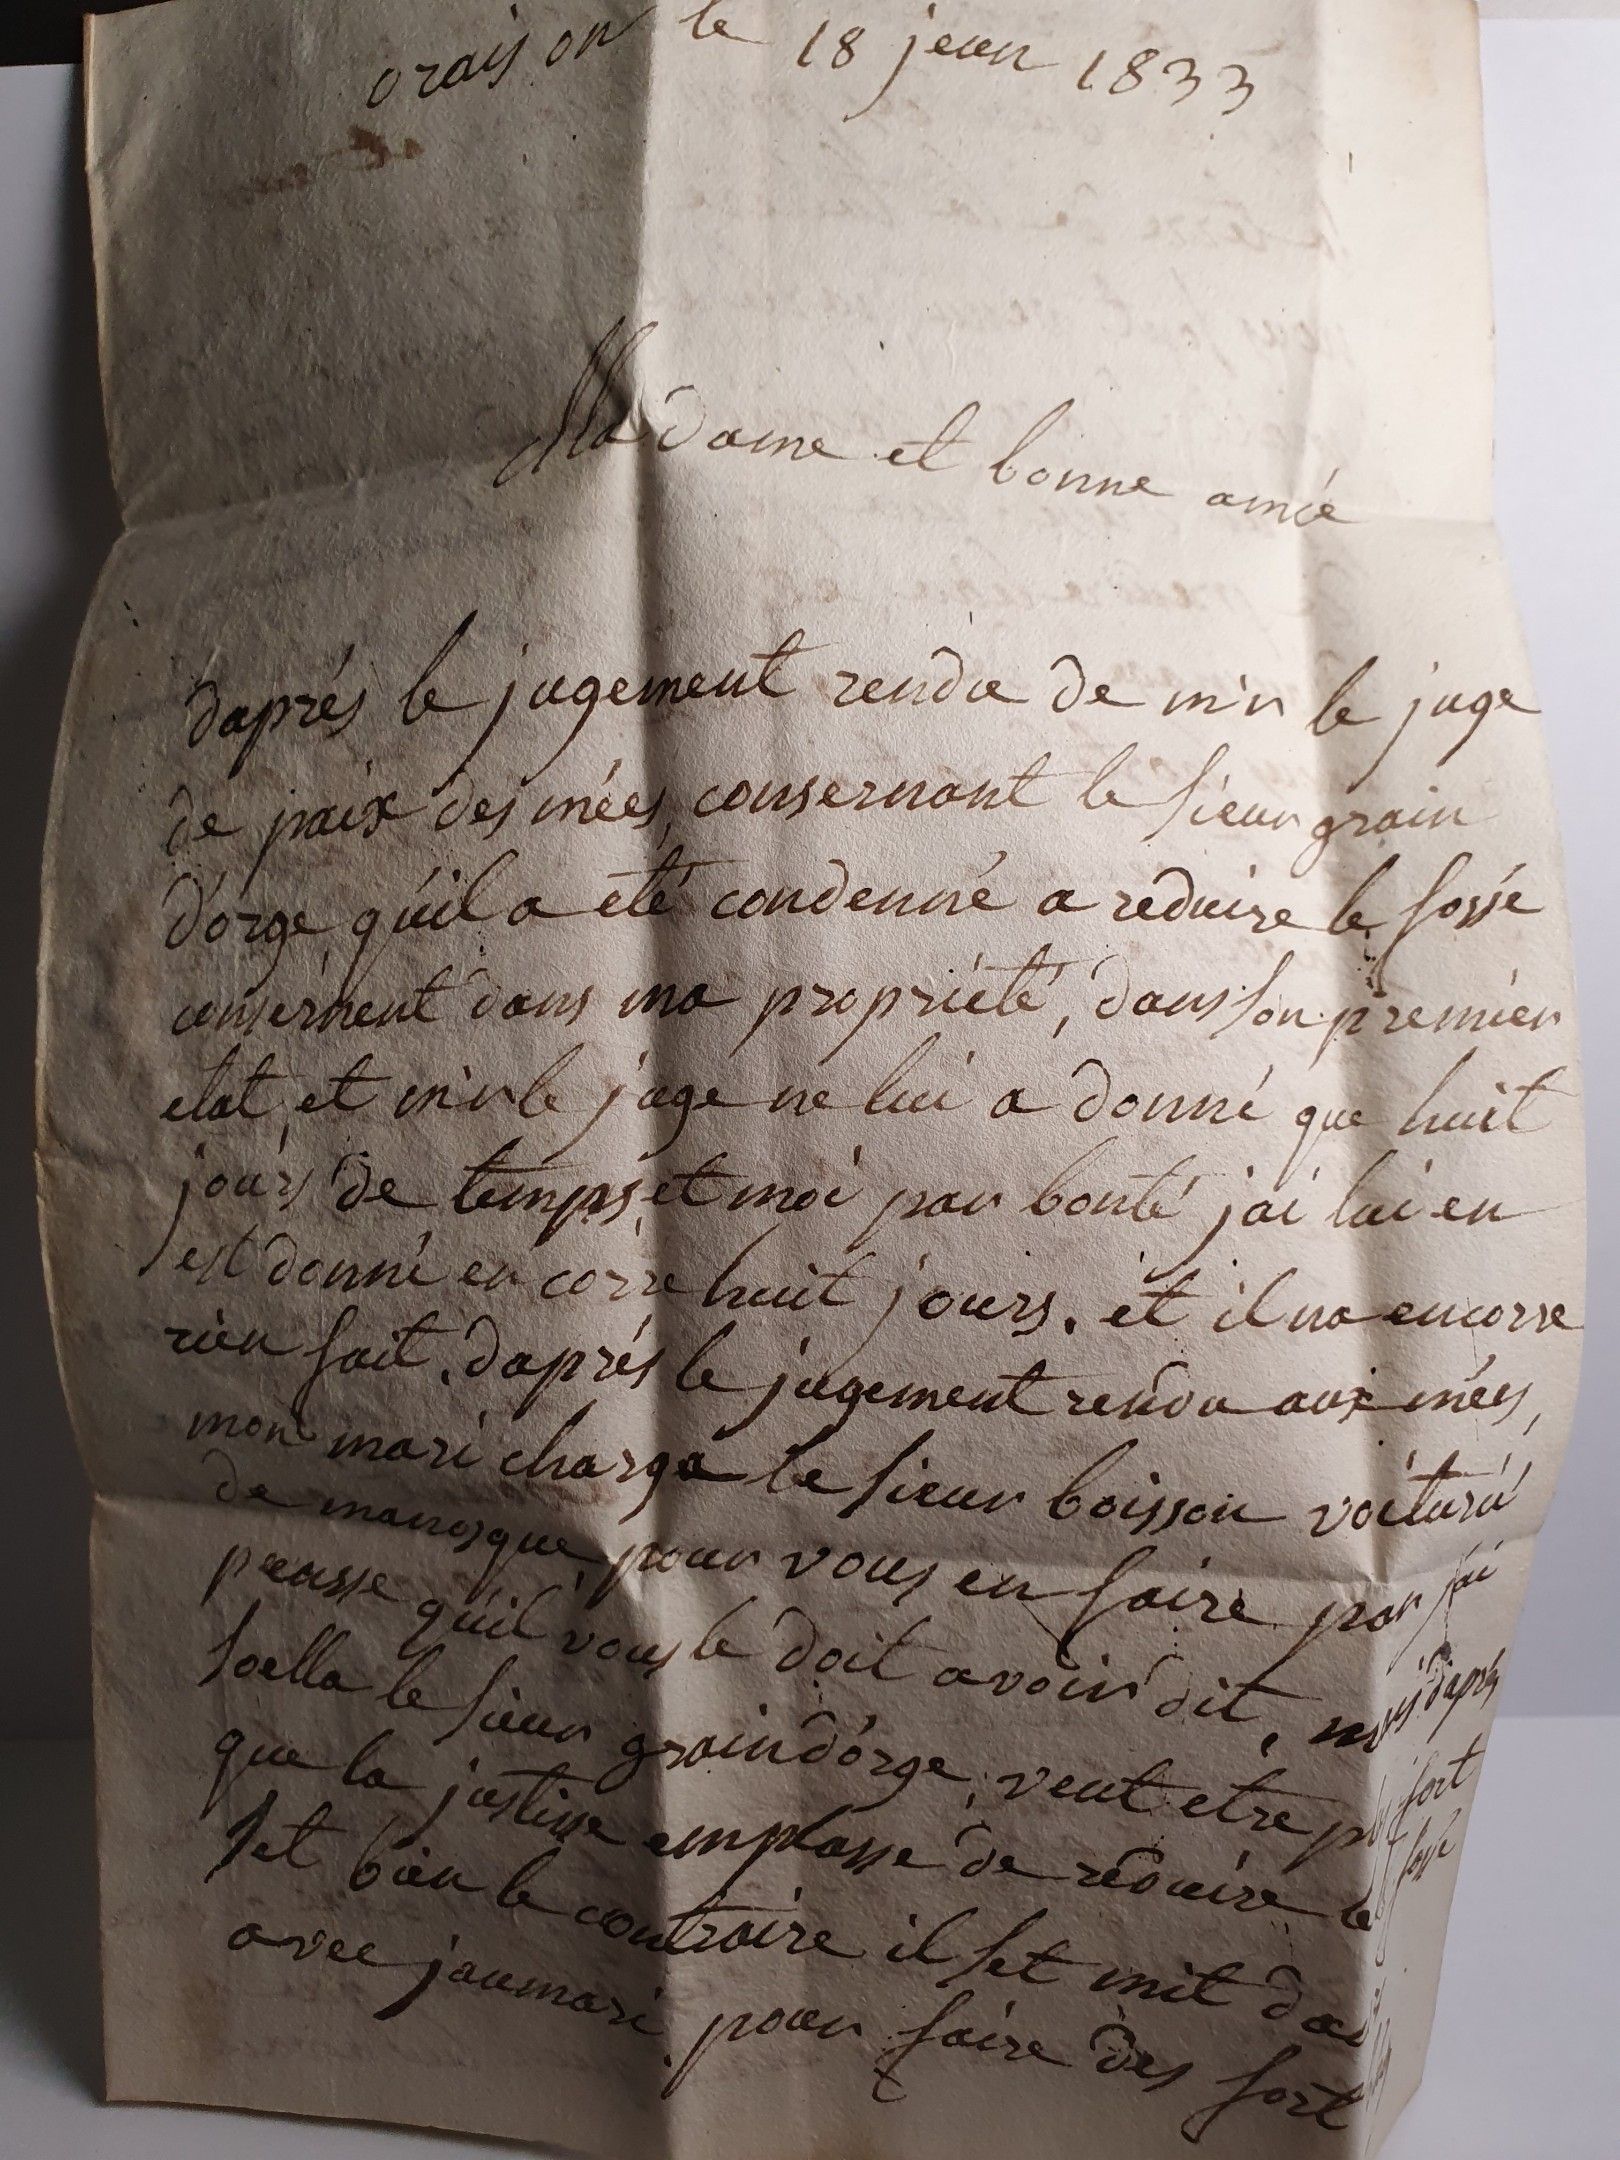 oraison le 18 jeun 1833
Madame et bonne amie
daprés le jugement rendu de m'r le juge
de paix des mées, consernant le sieur grain
d'orge, qu'il a eté condenné a reduire le fossé
consernent dans ma propriété, dans son premier
etat, et m'r le juge ne lui a donné que huit
jours de temps, et moi par bonté j'ai lui en
est donné encorre huit jours. et il na encorre
rien fait, daprés le jugement rendu aux mées,
mon mari charga le sieur boisson voituré
de manosque, pour vous en faire par jai
preusse qu'il vous le doit avoir dit, mais daprés
soella le sieur graind'orge, veut etre plus fort
que la justisse emplasse de reduire le fossé
set bien le contraire il set mit
avec jaumari pour faire des fort